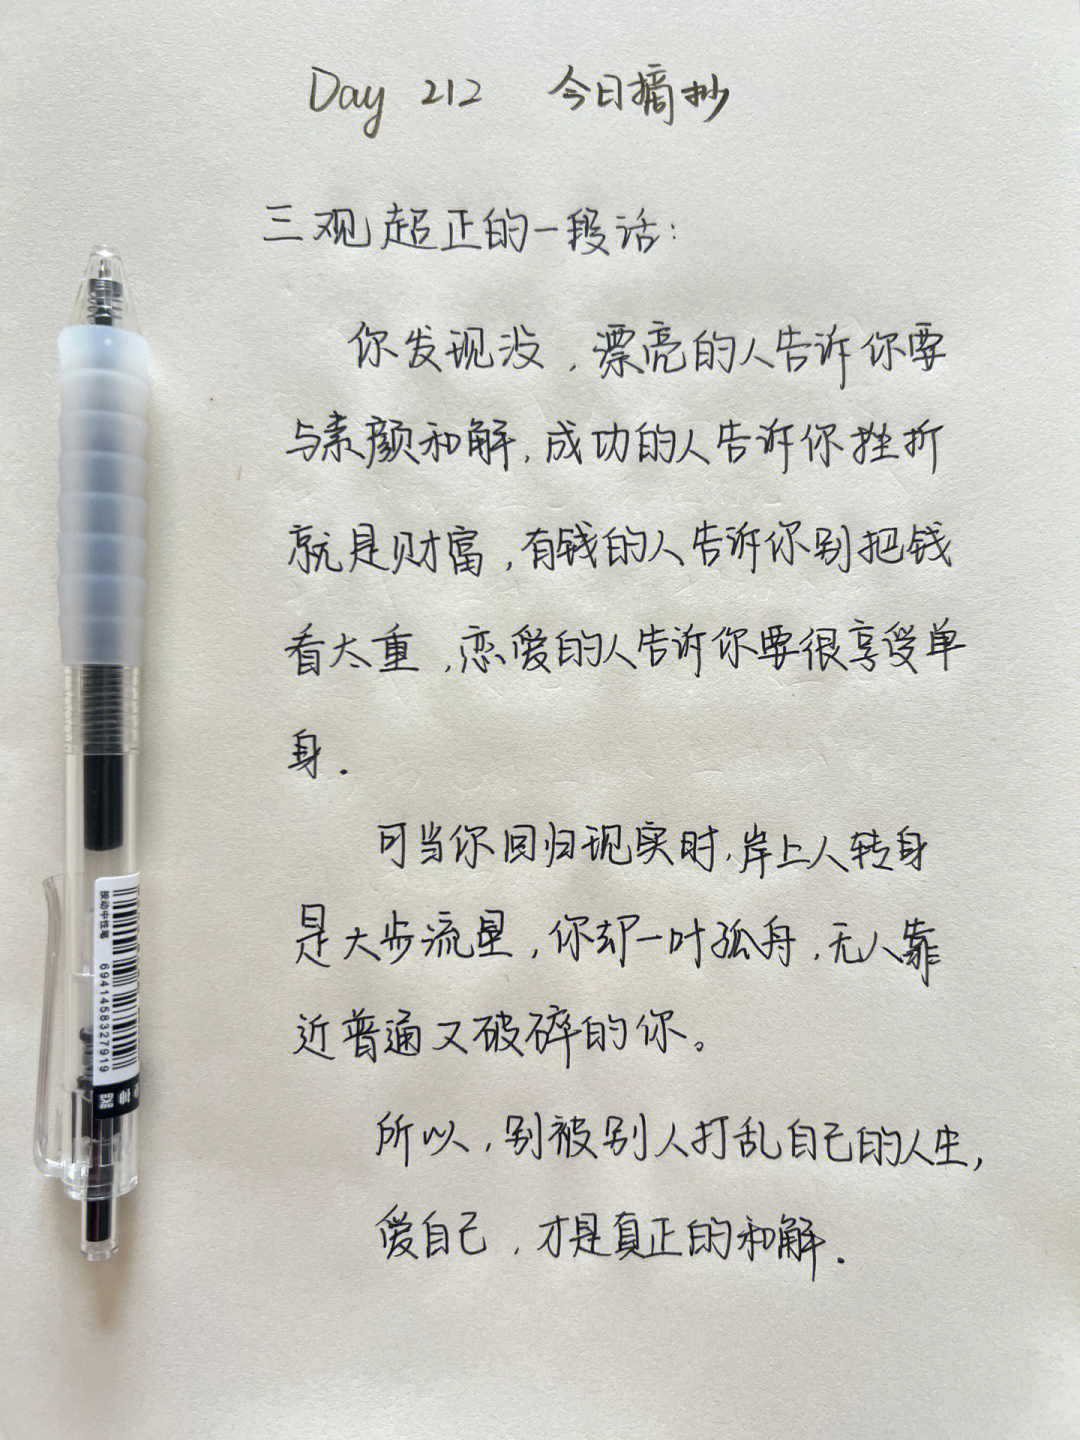 Day 212 今日摘抄
三观超正的一段话:
你发现没,漂亮的人告诉你要
与素颜和解,成功的人告诉你挫折
就是财富,有钱的人告诉你别把钱
看太重,恋爱的人告诉你要很享受单
身.
可当你回归现实时,岸上人转身
是大步流星,你却一叶孤舟,无人靠
近普通又破碎的你。
所以,别被别人打乱自己的人生,
爱自己,才是真正的和解.
按动中性笔
6941458327919